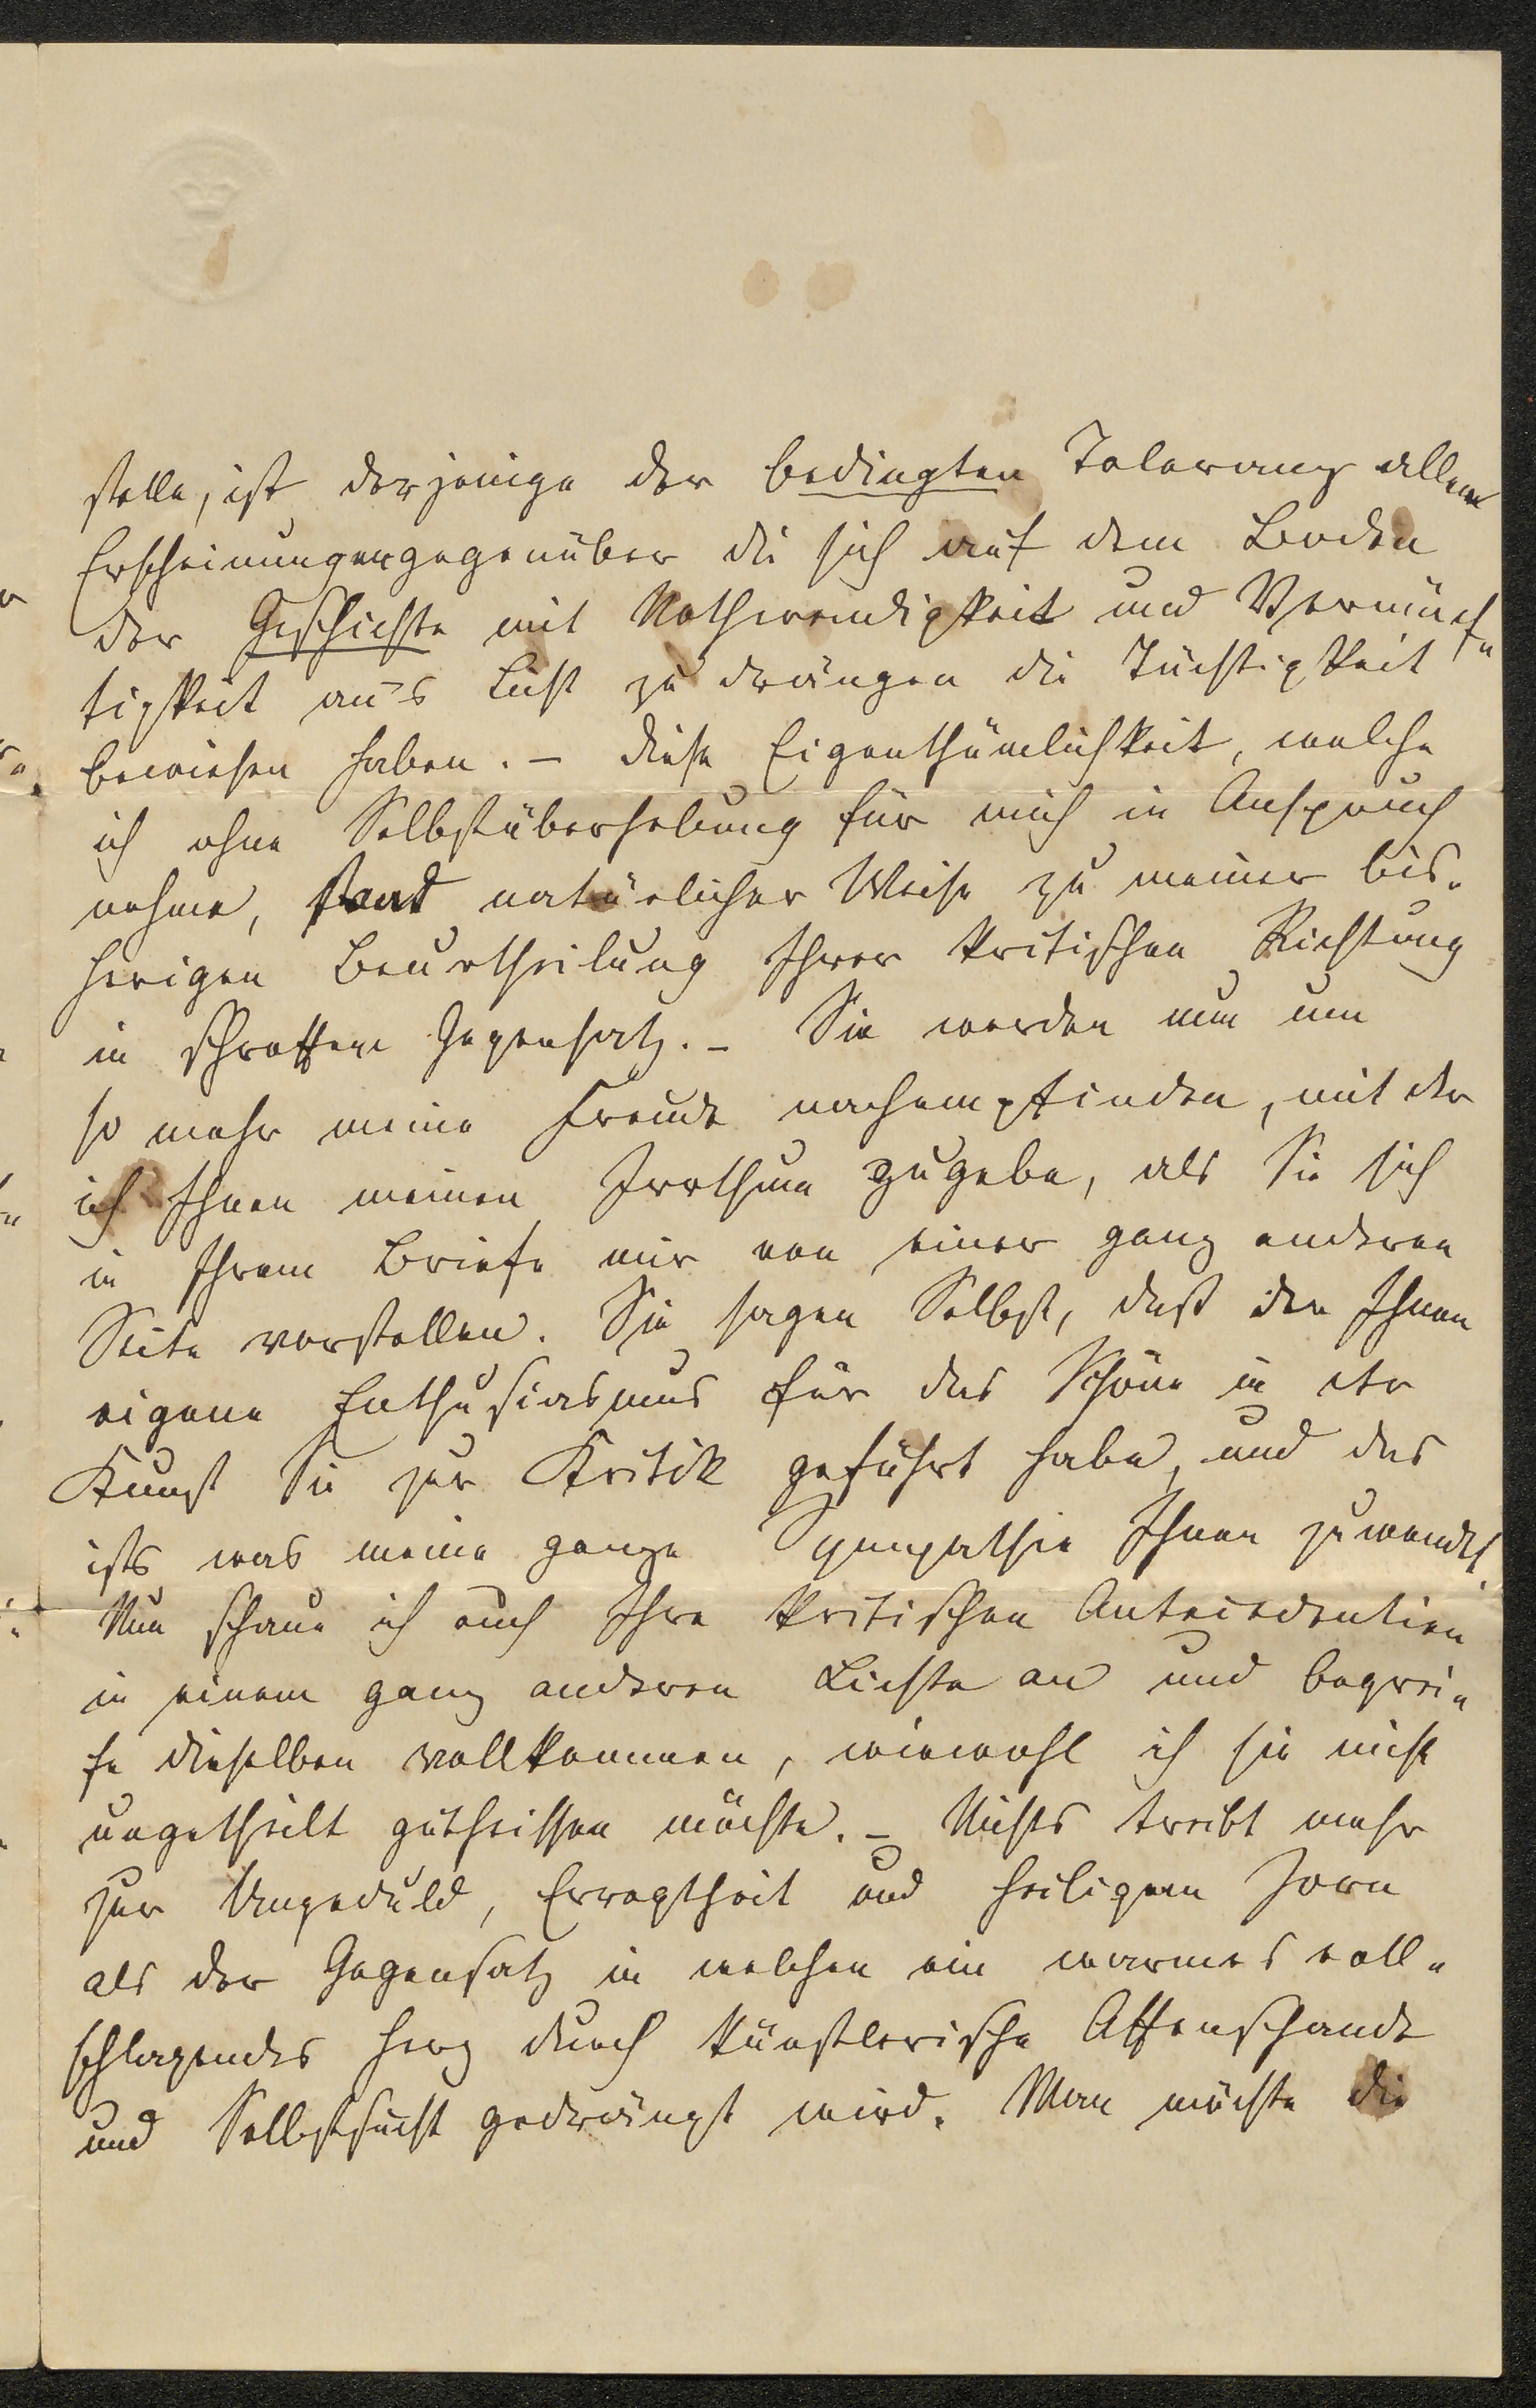 stelle, ist derjenige der bedingten Toleranz allen
Erscheinungen gegenüber die sich auf dem Boden
der Geschichte mit Nothwendigkeit und Vernünf-
tigkeit an's Licht zu drängen die Tüchtigkeit
bewiesen haben. – Diese Eigenthümlichkeit, welche
ich ohne Selbstüberhebung für mich in Anspruch
nehme, stand natürlicher Weise zu meiner bis-
herigen Beurtheilung Ihrer kritischen Richtung
in schroffem Gegensatz. – Sie werden nun um
so mehr meine Freude nachempfinden, mit der
ich Ihnen meinen Irrthum zugebe, als Sie sich
in Ihrem Briefe mir von einer ganz anderen
Seite vorstellen. Sie sagen Selbst, daß der Ihnen
eigene Enthusiasmus für das Schöne in der
Kunst Sie zur Kritik geführt habe, und das
ists was meine ganze Sympathie Ihnen zuwendet.
Nun schaue ich auch Ihre kritischen Antecedentien
in einem ganz anderen Lichte an und begrei-
fe dieselben vollkommen, wiewohl ich sie nicht
ungetheilt gutheissen möchte. – Nichts treibt mehr
zur Ungeduld, Erregtheit und heiligem Zorn
als der Gegensatz in welchen ein warmes voll-
schlagendes Herz durch künstlerische Affenschande
und Selbstsucht gedrängt wird. Man möchte die